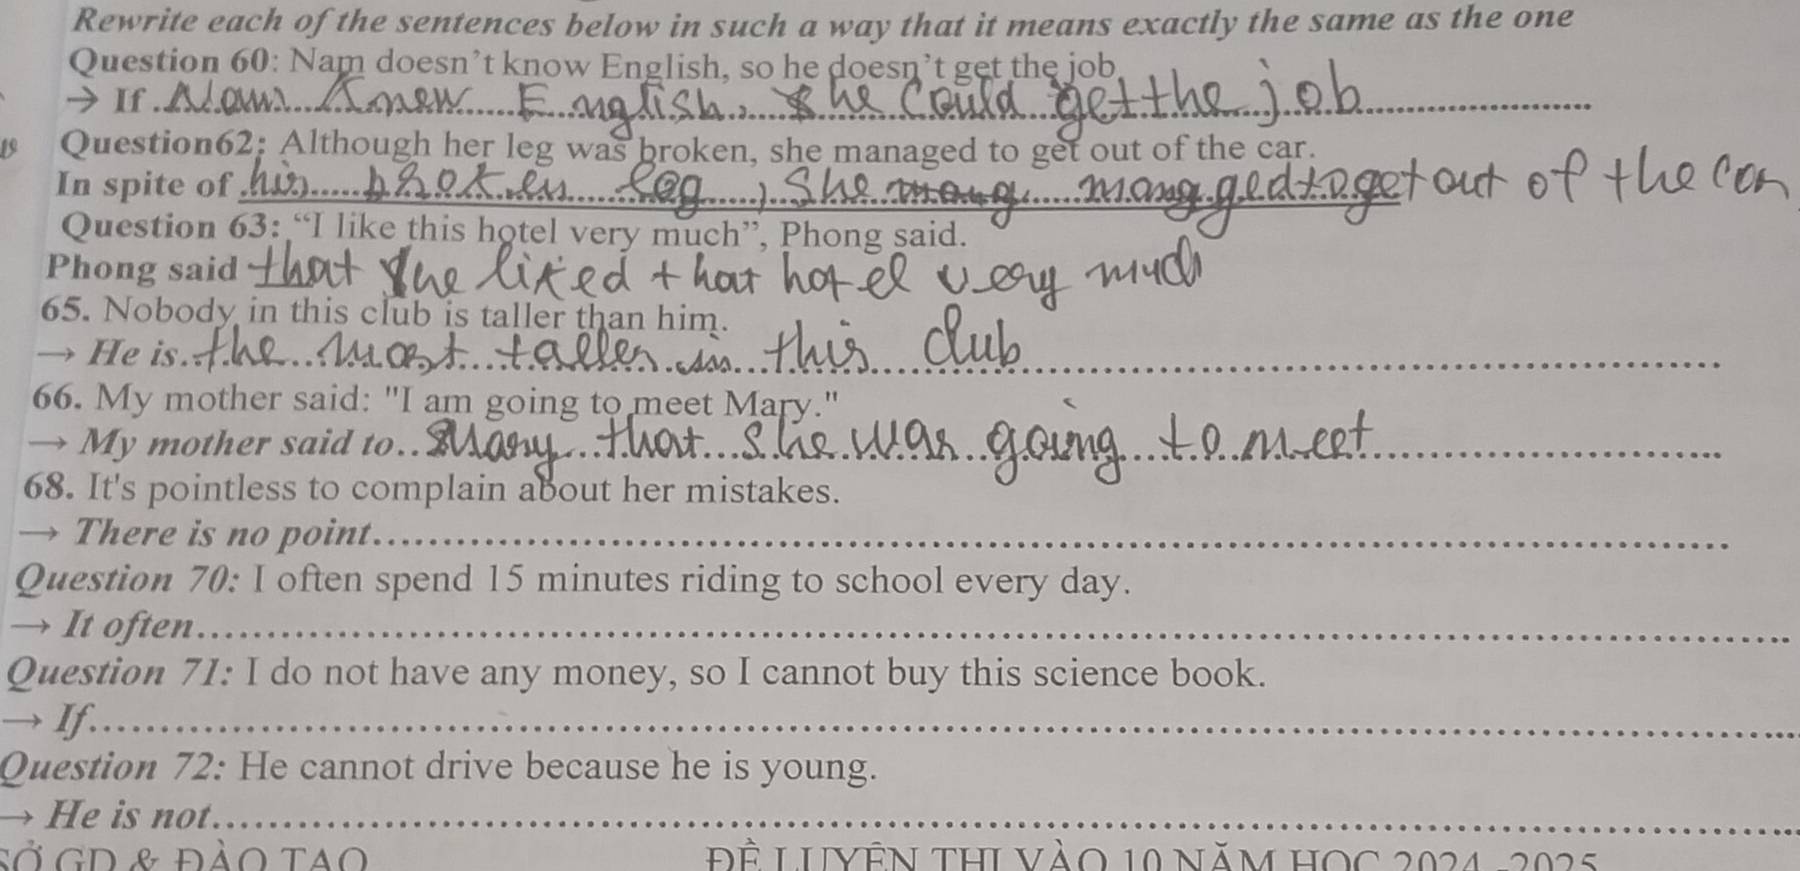 Rewrite each of the sentences below in such a way that it means exactly the same as the one
Question 60: Nam doesn't know English, so he doesn't get the job
→ If Nam knew English, he could get the job
Question62: Although her leg was broken, she managed to get out of the car.
In spite of his broken leg, she mang managed to get out of the car
Question 63: "I like this hotel very much", Phong said.
Phong said that she liked that hotel very much
65. Nobody in this club is taller than him.
→ He is the most taller in this club
66. My mother said: "I am going to meet Mary."
→ My mother said to Mary that she was going to meet
68. It's pointless to complain about her mistakes.
→ There is no point
Question 70: I often spend 15 minutes riding to school every day.
→ It often
Question 71: I do not have any money, so I cannot buy this science book.
→ If
Question 72: He cannot drive because he is young.
→ He is not
SỞ GD & ĐÀO TẠO ĐỀ LUYỆN THI VÀO 10 NĂM HỌC 2024 -2025